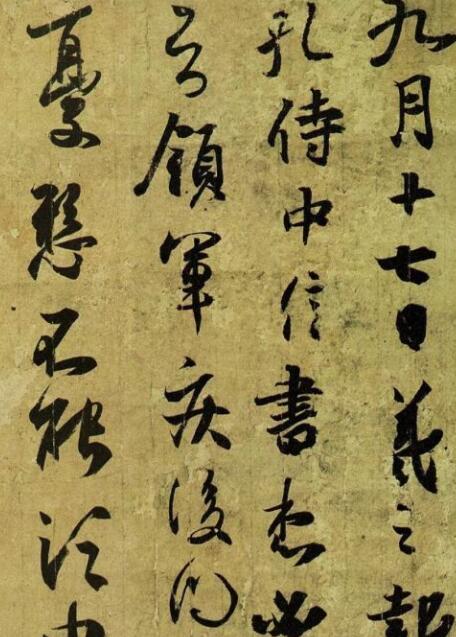 九月十七日羲之報
孔侍中信書想必
知領軍疾後問
憂懸不能須